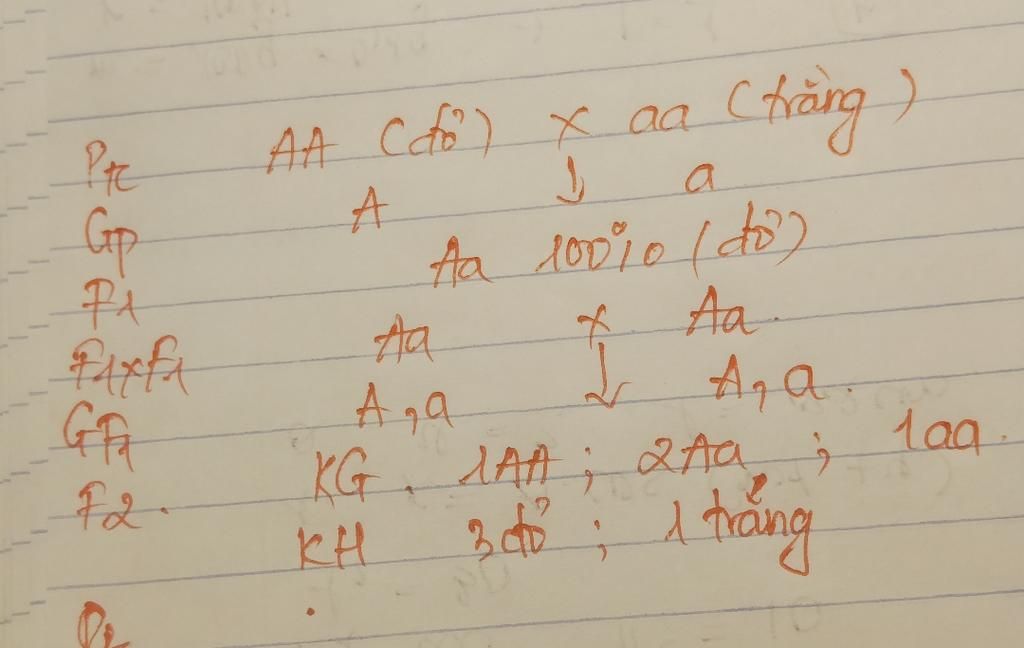 Ptc AA (đỏ) x aa (trắng)
Gp A ↓ a
F1 Aa 100% (đỏ)
F1xF1 Aa x Aa.
GF1 A, a ↓ A, a.
F2. KG. 1AA ; 2Aa ; 1aa.
KH 3 đỏ ; 1 trắng